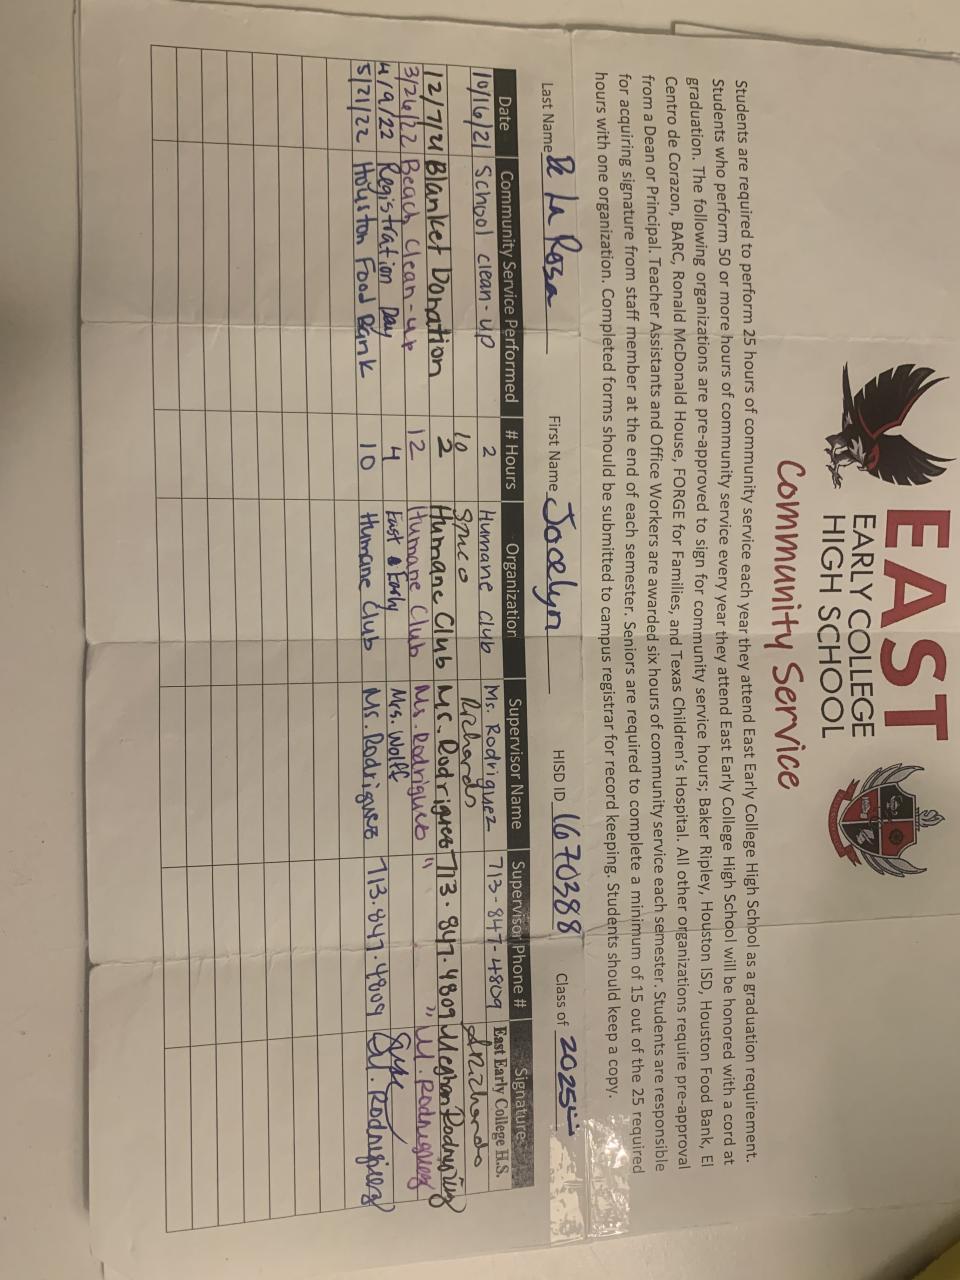 EAST
EARLY COLLEGE
HIGH SCHOOL
Community Service
Students are required to perform 25 hours of community service each year they attend East Early College High School as a graduation requirement.
Students who perform 50 or more hours of community service every year they attend East Early College High School will be honored with a cord at
graduation. The following organizations are pre-approved to sign for community service hours; Baker Ripley, Houston ISD, Houston Food Bank, El
Centro de Corazon, BARC, Ronald McDonald House, FORGE for Families, and Texas Children's Hospital. All other organizations require pre-approval
from a Dean or Principal. Teacher Assistants and Office Workers are awarded six hours of community service each semester. Students are responsible
for acquiring signature from staff member at the end of each semester. Seniors are required to complete a minimum of 15 out of the 25 required
hours with one organization. Completed forms should be submitted to campus registrar for record keeping. Students should keep a copy.
Last Name De La Rosa First Name Jocelyn HISD ID 1670388 Class of 2025
Date Community Service Performed # Hours Organization Supervisor Name Supervisor Phone # Signature
10/16/21 School clean-up 2 Humane Club Ms. Rodriguez 713-847-4809 East Early College H.S.
10 Richards
12/7/21 Blanket Donation 2 Humane Club Ms. Rodriguez 713.847.4809 Meghan Rodriguez
3/26/22 Beach Clean-up 12 Humane Club Ms. Rodriguez " " M. Rodriguez
4/9/22 Registration Day 4 East Early Mrs. Wolff
5/21/22 Houston Food Bank 10 Humane Club Ms. Rodriguez 713.847.4809 M. Rodriguez